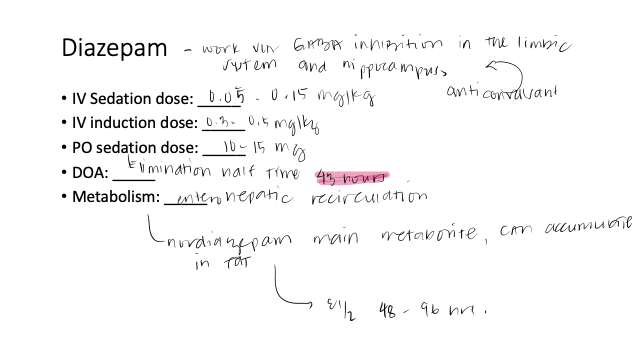 Diazepam - work via GABA inhibition in the limbic
system and hippocampus
anticonvulsant
• IV Sedation dose: 0.05 - 0.15 mg/kg
• IV induction dose: 0.3 - 0.5 mg/kg
• PO sedation dose: 10 - 15 mg
• DOA: Elimination half time 43 hours
• Metabolism: enterohepatic recirculation
nordiazepam main metabolite, can accumulate
in fat
E1/2 48 - 96 hrs.